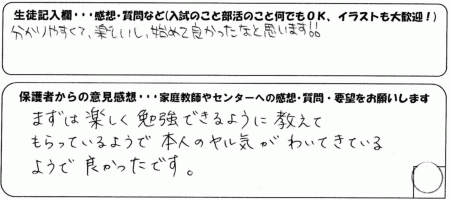 生徒記入欄・・・感想・質問など(入試のこと部活のこと何でもOK、イラストも大歓迎！)
分かりやすくて、楽しいし、始めて良かったなと思います!!
保護者からの意見感想・・・家庭教師やセンターへの感想・質問・要望をお願いします
まずは楽しく勉強できるように教えて
もらっているようで本人のヤル気がわいてきている
ようで良かったです。